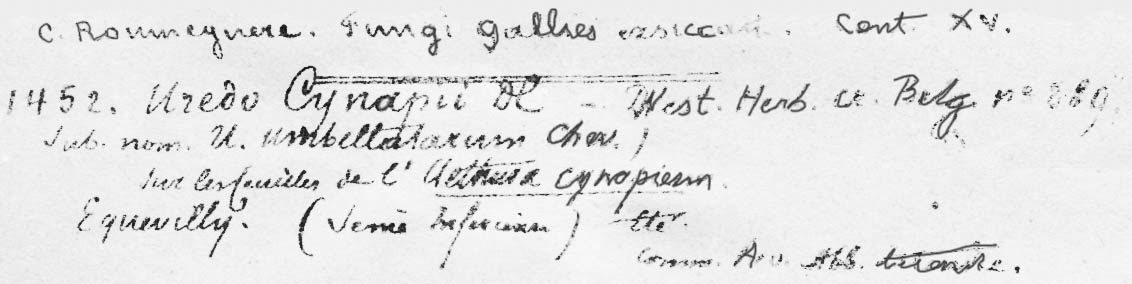 C. Roumeguere. Fungi Gallici exsiccati. Cent. XV.
1452. Uredo Cynapii DC – West. Herb. cr. Belg. nº 889.
Sub. nom. U. umbellatarum Chev.)
Sur les feuilles de l' Aethusa cynapium.
Equevilly. (Seine Inferieure) Eté.
Comm. Abb.